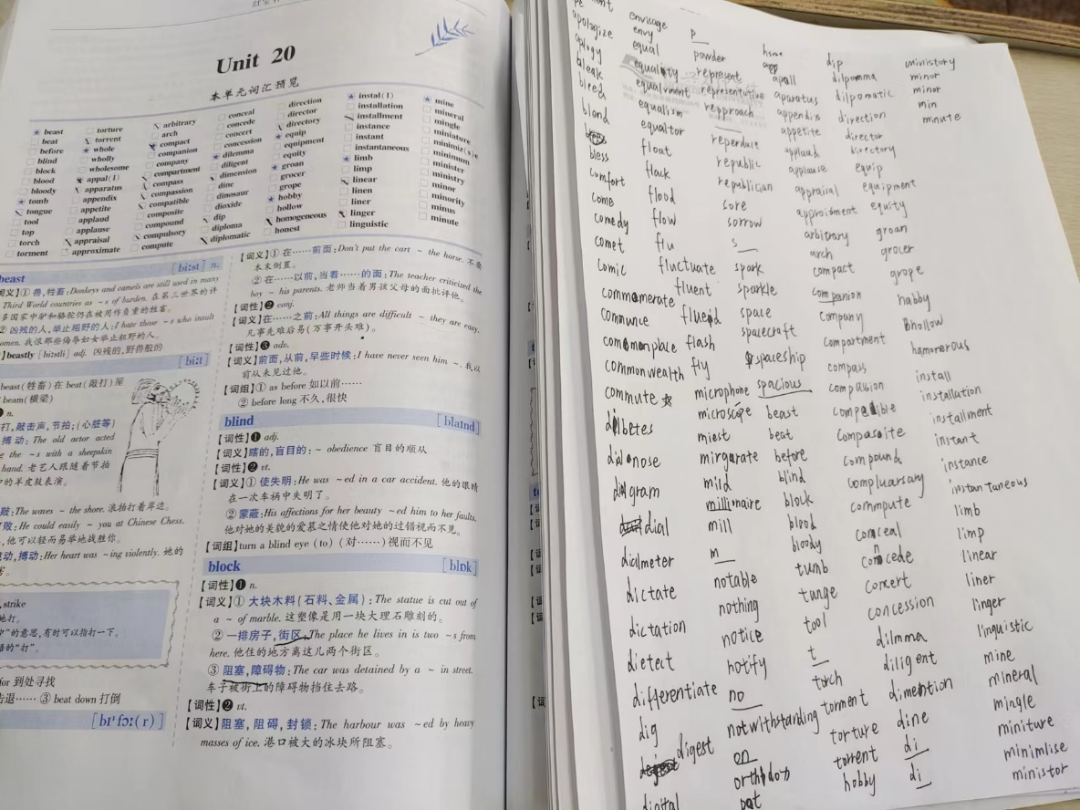 Unit 20
本单元词汇预览
beast
beat
before
blind
block
blood
bloody
tomb
tongue
tool
top
torch
torment
torture
torrent
whole
wholly
wholesome
appal(l)
apparatus
appendix
appetite
applaud
applause
appraisal
approximate
arbitrary
arch
compact
companion
company
compartment
compass
compassion
compatible
composite
compound
compulsory
compute
conceal
concede
concert
concession
dilemma
diligent
dimension
dine
dinosaur
dioxide
dip
diploma
diplomatic
direction
director
directory
equip
equipment
equity
groan
grocer
grope
hobby
hollow
homogeneous
honest
instal(l)
installation
installment
instance
instant
instantaneous
limb
limp
linear
linen
liner
linger
linguistic
mine
mineral
mingle
miniature
minimum
minister
ministry
minor
minority
minus
minute
beast [biːst] n.
词义】① 兽,牲畜:Donkeys and camels are still used in many
Third World countries as ~s of burden. 在第三世界的许
多国家中驴和骆驼仍在被用作负重的牲畜。
② 凶残的人,举止粗野的人:I hate those ~s who insult
beastly [biːstli] adj. 凶残的,野兽般的
[biːt]
beast(牲畜)在 beat(敲打)屋
beam(横梁)
n.
打,敲击声,节拍;(心脏等)
搏动:The old actor acted
the ~s with a sheepskin
hand. 老艺人跟随着节拍
的羊皮鼓表演。
The waves ~ the shore. 浪拍打着岸边。
败:He could easily ~ you at Chinese Chess.
,他可以轻而易举地战胜你。
动,搏动:Her heart was ~ing violently. 她的
strike
”的意思,有时可以指打一下。
的“打”。
for 到处寻找
击退…… ③ beat down 打倒
[bɪˈfɔː(r)]
【词义】① 在……前面:Don't put the cart ~ the horse. 不要
本末倒置。
② 在……以前,当着……的面:The teacher criticised the
boy ~ his parents. 老师当着男孩父母的面批评他。
【词性】❷ conj.
【词义】在……之前:All things are difficult ~ they are easy.
凡事先难后易(万事开头难)。
【词性】❸ adv.
【词义】前面,从前,早些时候:I have never seen him ~. 我以
前从未见过他。
【词组】① as before 如以前……
② before long 不久,很快
blind [blaɪnd]
【词性】❶ adj.
【词义】瞎的,盲目的:~ obedience 盲目的顺从
【词性】❷ vt.
【词义】① 使失明:He was ~ed in a car accident. 他的眼睛
在一次车祸中失明了。
② 蒙蔽:His affections for her beauty ~ed him to her faults.
他对她的美貌的爱慕之情使他对她的过错视而不见。
【词组】turn a blind eye (to) (对……)视而不见
block [blɒk]
【词性】❶ n.
【词义】① 大块木料(石料、金属):The statue is cut out of
a ~ of marble. 这塑像是用一块大理石雕刻的。
② 一排房子,街区:The place he lives in is two ~s from
here. 他住的地方离这儿两个街区。
③ 阻塞,障碍物:The car was detained by a ~ in street.
车子被街上的障碍物挡住去路。
【词性】❷ vt.
【词义】阻塞,阻碍,封锁:The harbour was ~ed by heavy
masses of ice. 港口被大的冰块所阻塞。
apologize
bleak
bleed
blond
bless
comfort
come
comedy
comet
comic
commomerate
commonplace
commonwealth
commute
diabetes
diagram
dial
dialmeter
dictate
dictation
dietect
differentiate
dig
digest
digital
envisage
envy
equal
equality
equalism
equaltor
float
flock
flood
flow
flu
fluctuate
fluent
flash
fly
microphone
microscope
miest
mild
millionaire
mill
m
notable
nothing
notice
notify
no
notwithstanding
on
p
powder
represent
representative
republic
republican
sore
sorrow
s
spark
sparkle
space
spacecraft
spaceship
spacious
beast
beat
before
blind
block
blood
bloody
tumb
tunge
tool
t
torch
torment
torture
torrent
hobby
appall
aparatus
appendix
appetite
applaud
applause
appraisal
arbitrary
arch
compact
companion
company
compartment
compass
compound
commpute
conceal
concede
concert
concession
dilmma
diligent
dimention
dine
di
di
dip
dilpomma
dilpomatic
direction
director
directory
equip
equipment
equity
groan
grocer
grope
habby
hollow
install
installation
installment
instant
instance
instantaneous
limb
limp
linear
liner
linger
linguistic
mine
mineral
mingle
miniture
minimlise
ministor
ministory
minor
minor
min
minute